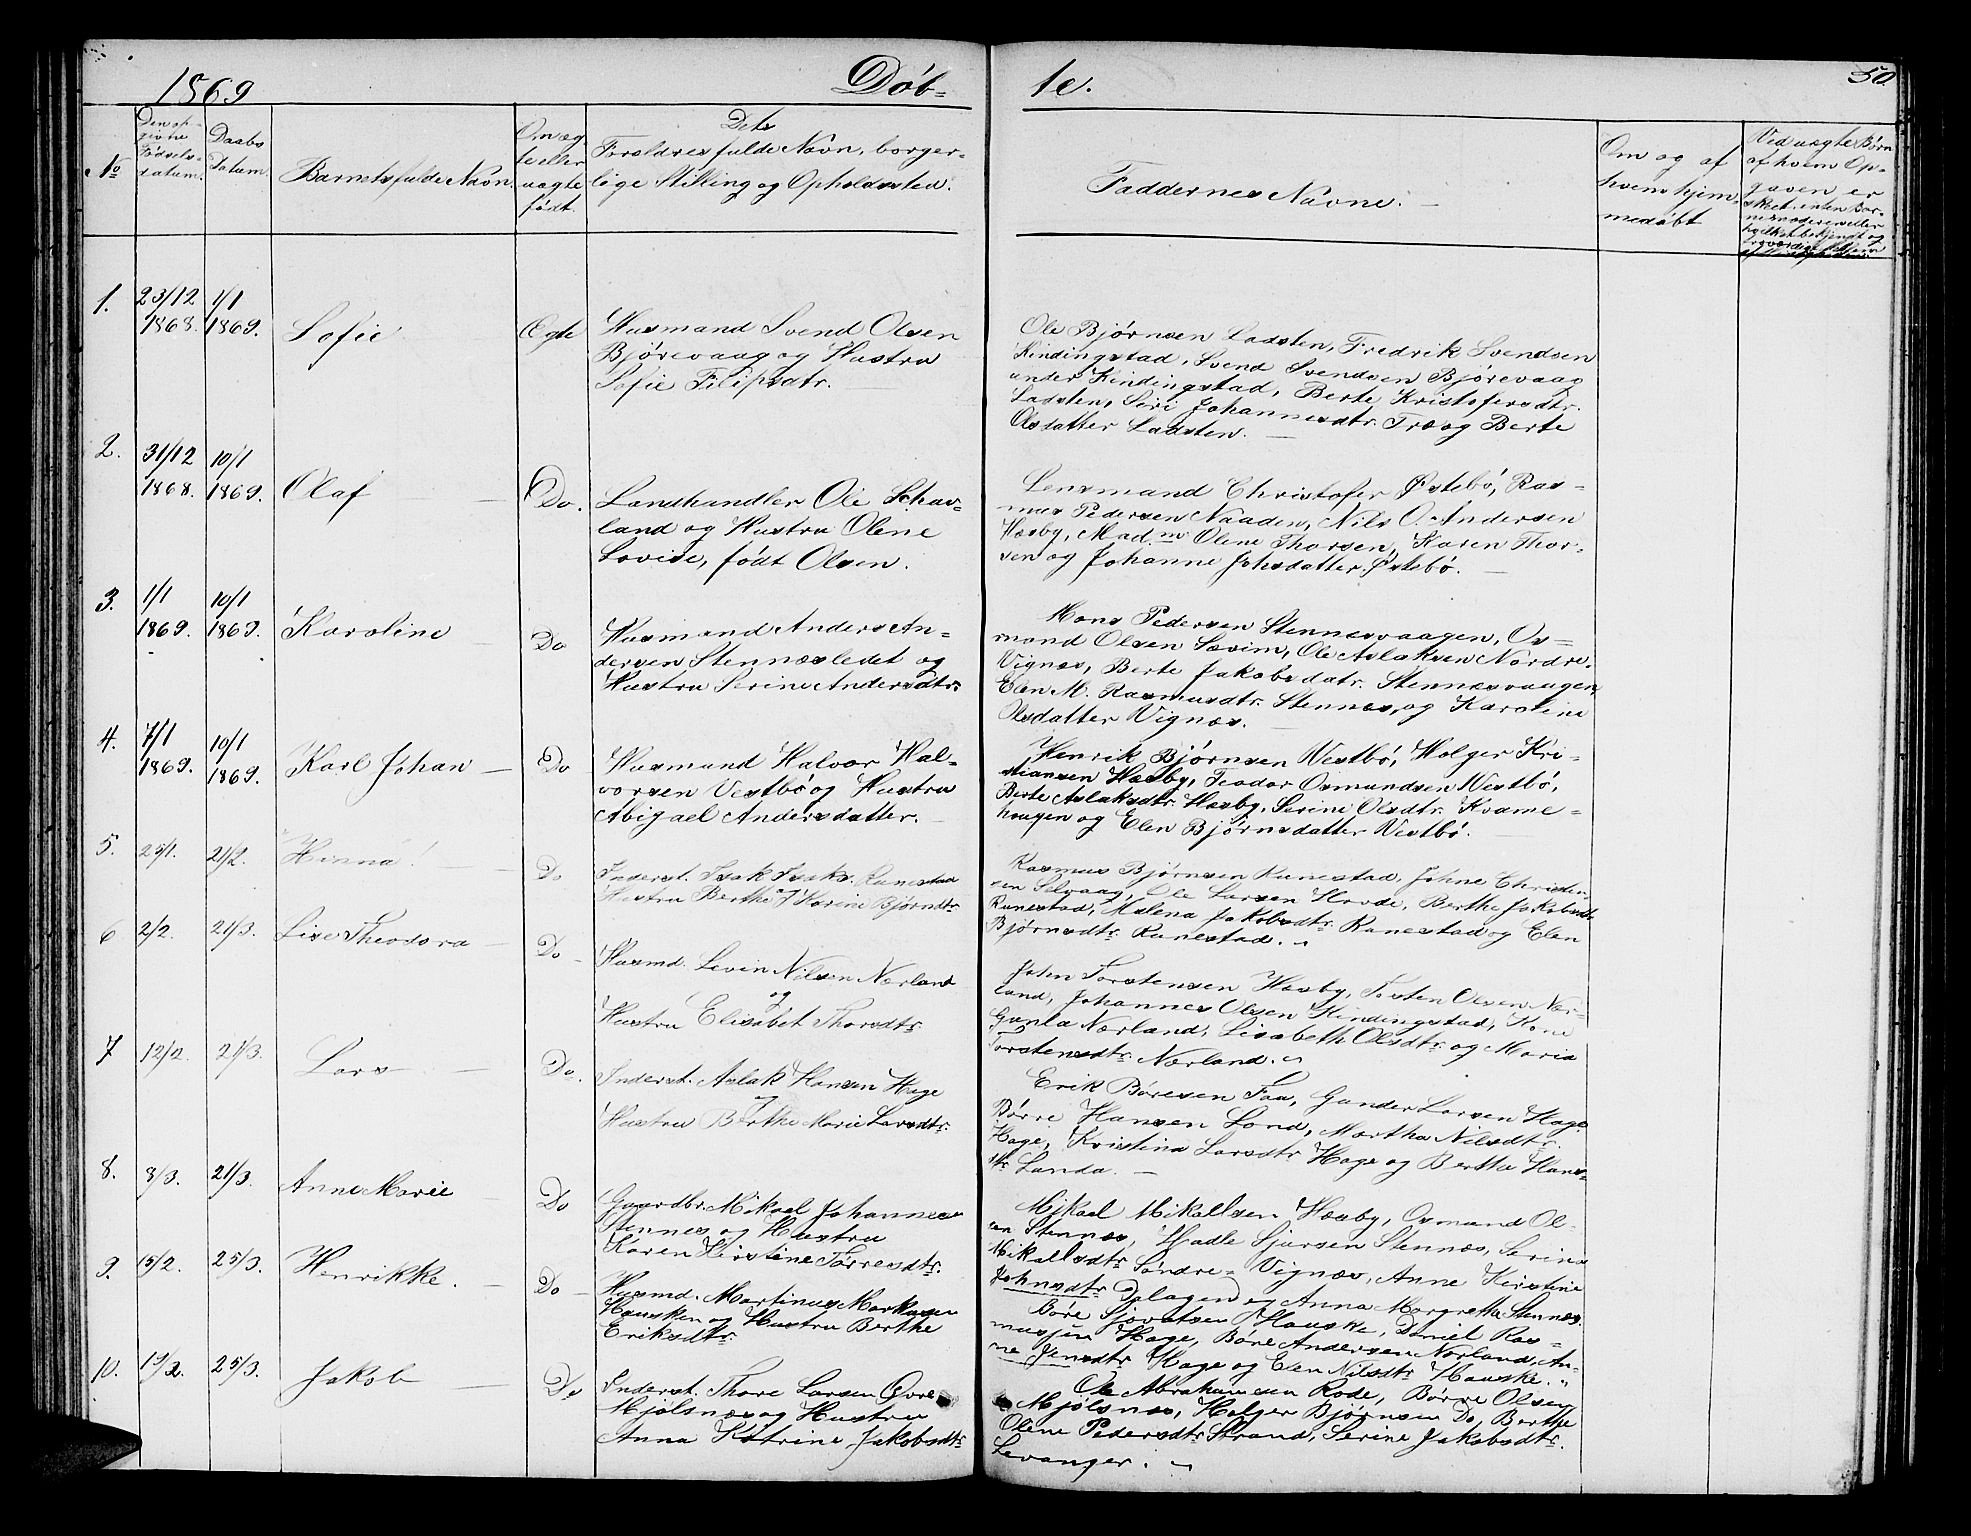 1869 Døb- te. 50
No
Den opgivne Fødselsdatum.
Daabs Datum.
Barnets fulde Navn.
Om ægte eller uægte født.
Dets Forældres fulde Navn, borgerlige Stilling og Opholdssted.
Faddernes Navne.
Om og af hvem hjemmedøbt
Ved uægte Børn af hvem Opgaven er skeet, enten Barnemoderen eller
1. 23/12 1868. 1/1 1869. Sofie Ægte
Husmand Svend Olsen
Bjørevaag og Hustru
Sofie Filipsdtr.
Ole Bjørnsen Ladsten, Fredrik Svendsen
Kindingstad, Svend Svendsen Bjørevaag
under Kindingstad, Berte Kristofersdtr.
Ladsten, Siri Johannesdtr. Træ og Berte
Olsdatter Ladsten.
2. 31/12 1868. 10/1 1869. Olaf Do.
Landhandler Ole Schav-
land og Hustru Olene
Lovise, født Olsen.
Lensmand Christofer Østebø, Ras-
mus Pedersen Naaden, Nils O. Andersen
Hæsby, Mad.m Olene Thorsen, Karen Thor-
sen og Johanne Johsdatter Østebø.
3. 1/1 1869. 10/1 1869. Karoline Do
Husmand Anders An-
dersen Stennesledet og
Hustru Serine Andersdtr.
Mons Pedersen Stennesvaagen, Os-
mond Olsen Sævim, Ole Aslaksen Nordre-
Vignæs, Berte Jakobsdatr. Stennesvaagen,
Elen M. Rasmusdtr. Stennes, og Karoline
Olsdatter Vignæs.
4. 7/1 1869. 10/1 1869. Karl Johan Do
Husmand Halvor Hal-
vorsen Vestbø og Hustru
Abigael Andersdatter.
Henrik Bjørnsen Vestbø, Holger Kri-
stiansen Hæsby, Teodor Osmundsen Vestbø,
Berte Aslaksdtr. Hæsby, Serine Olsdtr. Kvame-
hougen og Elen Bjørnsdatter Vestbø.
5. 25/1. 21/2. Hinna! Do
Inderst. Isak Isaks. Runestad
Hustru Berthe Karine Bjørndtr.
Rasmus Bjørnsen Runestad, Johne Christen-
sen Selvaag, Ole Larsen Hovde, Berthe Jakobsdtr.
Runestad, Malena Jakobsdtr. Runestad og Elen
Bjørnsdtr. Runestad.
6 2/2. 21/3. Lise Theodora Do
Husmd. Levin Nilsen Nærland
og
Hustru Elisabet Thorsdtr.
John Torstensen Hæsby, Torsten Olsen Nær-
land, Johannes Olsen Kindingstad, Kone
Gunla Nærland, Lisabeth Olsdtr. og Maria
Torstensdtr. Nærland.
7 12/2. 21/3. Lars Do.
Inderst. Aslak Hansen Hage
og
Hustru Berthe Marie Larsdtr.
Erik Børesen Faa, Gunder Larsen Hage
Børre Hansen Land, Martha Nilsdtr.
Hage, Kristina Larsdtr Hage og Bertha Hans-
dtr. Landa.
8. 3/3. 21/3. Anne Marie Do
Gaardbr. Mikael Johannes
Stennes og Hustru
Karen Kirstine Tørresdtr.
Mikael Mikalsen Hæsby, Osmund Ol-
sen Stennes, Hadle Sjursen Stennæs, Serina
Mikallsdtr. Søndre-Vignæs, Anne Kirstine
Johnsdtr. Dalagen og Anna Margretha Stennes.
9. 15/2. 25/3. Henrikke. Do
Husmd. Martinus Markusen
Hausken og Hustru Berthe
Eriksdtr.
Børe Sjovatsen Hauske, Daniel Ras-
musjen Hage, Børe Andersen Norland, An-
ne Jensdtr. Hage og Elen Nilsdtr. Hauske.
10. 19/2. 25/3. Jakob Do
Inderst. Thore Larsen Øvre
Mjølsnes og Hustru
Anna Katrine Jakobsdtr.
Ole Abrahamsen Rode, Børre Olsen
Mjølsnes, Holger Bjørnsen Do, Berthe
Olene Pedersdtr. Strand, Serine Jakobsdtr.
Levanger.